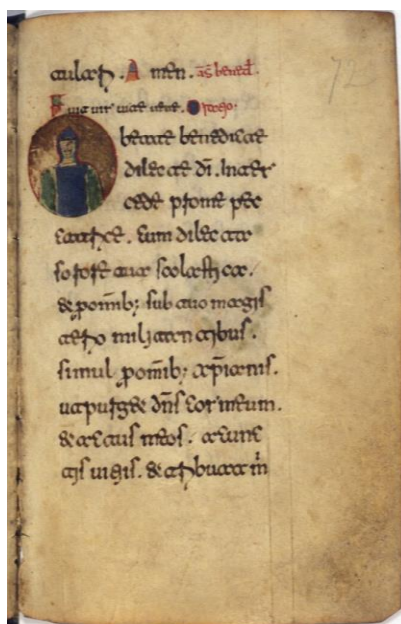 culor. Amen. bened.
72
uir uite
beate benedicte
dilecte di. Inter
cede p me pec
catore. cum dilecta
sorore tua scolastica.
et p omib; sub tuo magis
terio militantibus.
simul p omib; xpianis.
ut purget dns cor meum.
et actus meos. a cunc
tis uitiis. et tribuat m